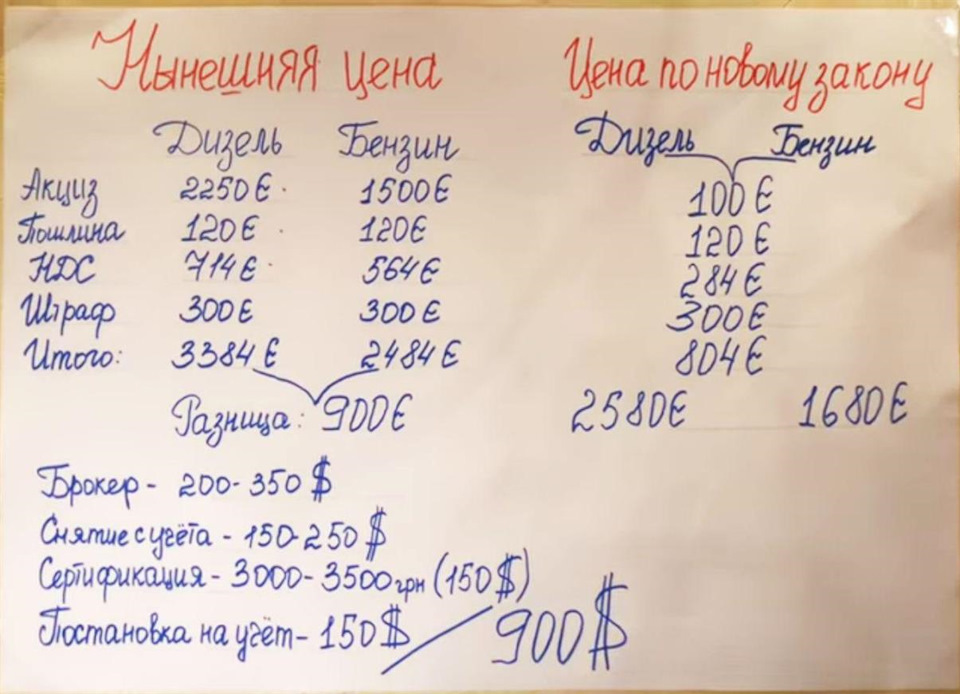 Нынешняя цена
Дизель Бензин
Акциз 2250€ 1500€
Пошлина 120€ 120€
НДС 714€ 564€
Штраф 300€ 300€
Итого: 3384€ 2484€
Разница: 900€
Цена по новому закону
Дизель Бензин
100€
120€
284€
300€
804€
2580€ 1680€
Брокер - 200-350$
Снятие с учёта - 150-250$
Сертификация - 3000-3500грн (150$)
Постановка на учёт - 150$ / 900$